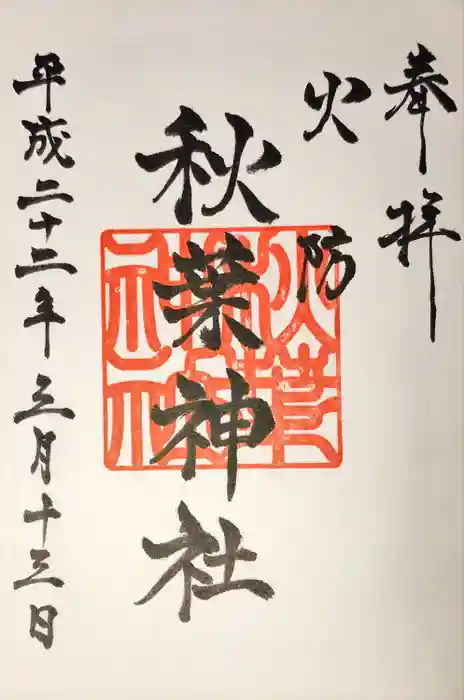 奉拝
火防
秋葉神社
平成二十二年三月十三日